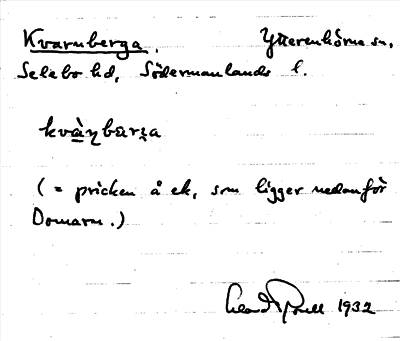 Kvarnberga. Ytterenhörna sn,
Selebo hd, Södermanlands l.
kvàɳbærga
(= pricken å ek, som ligger nedanför
Domarn.)
1932